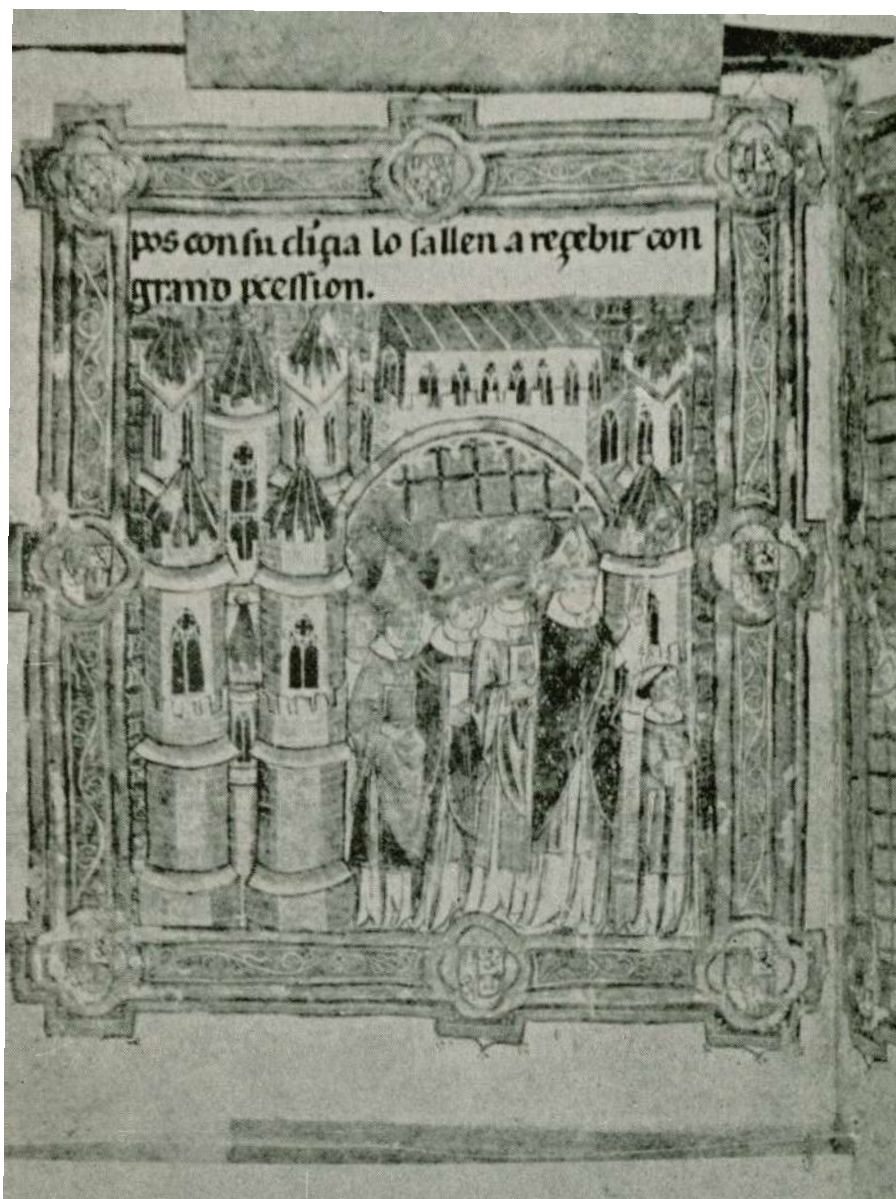 pos con su clīzia lo sallen a reçebir con
grand pcession.